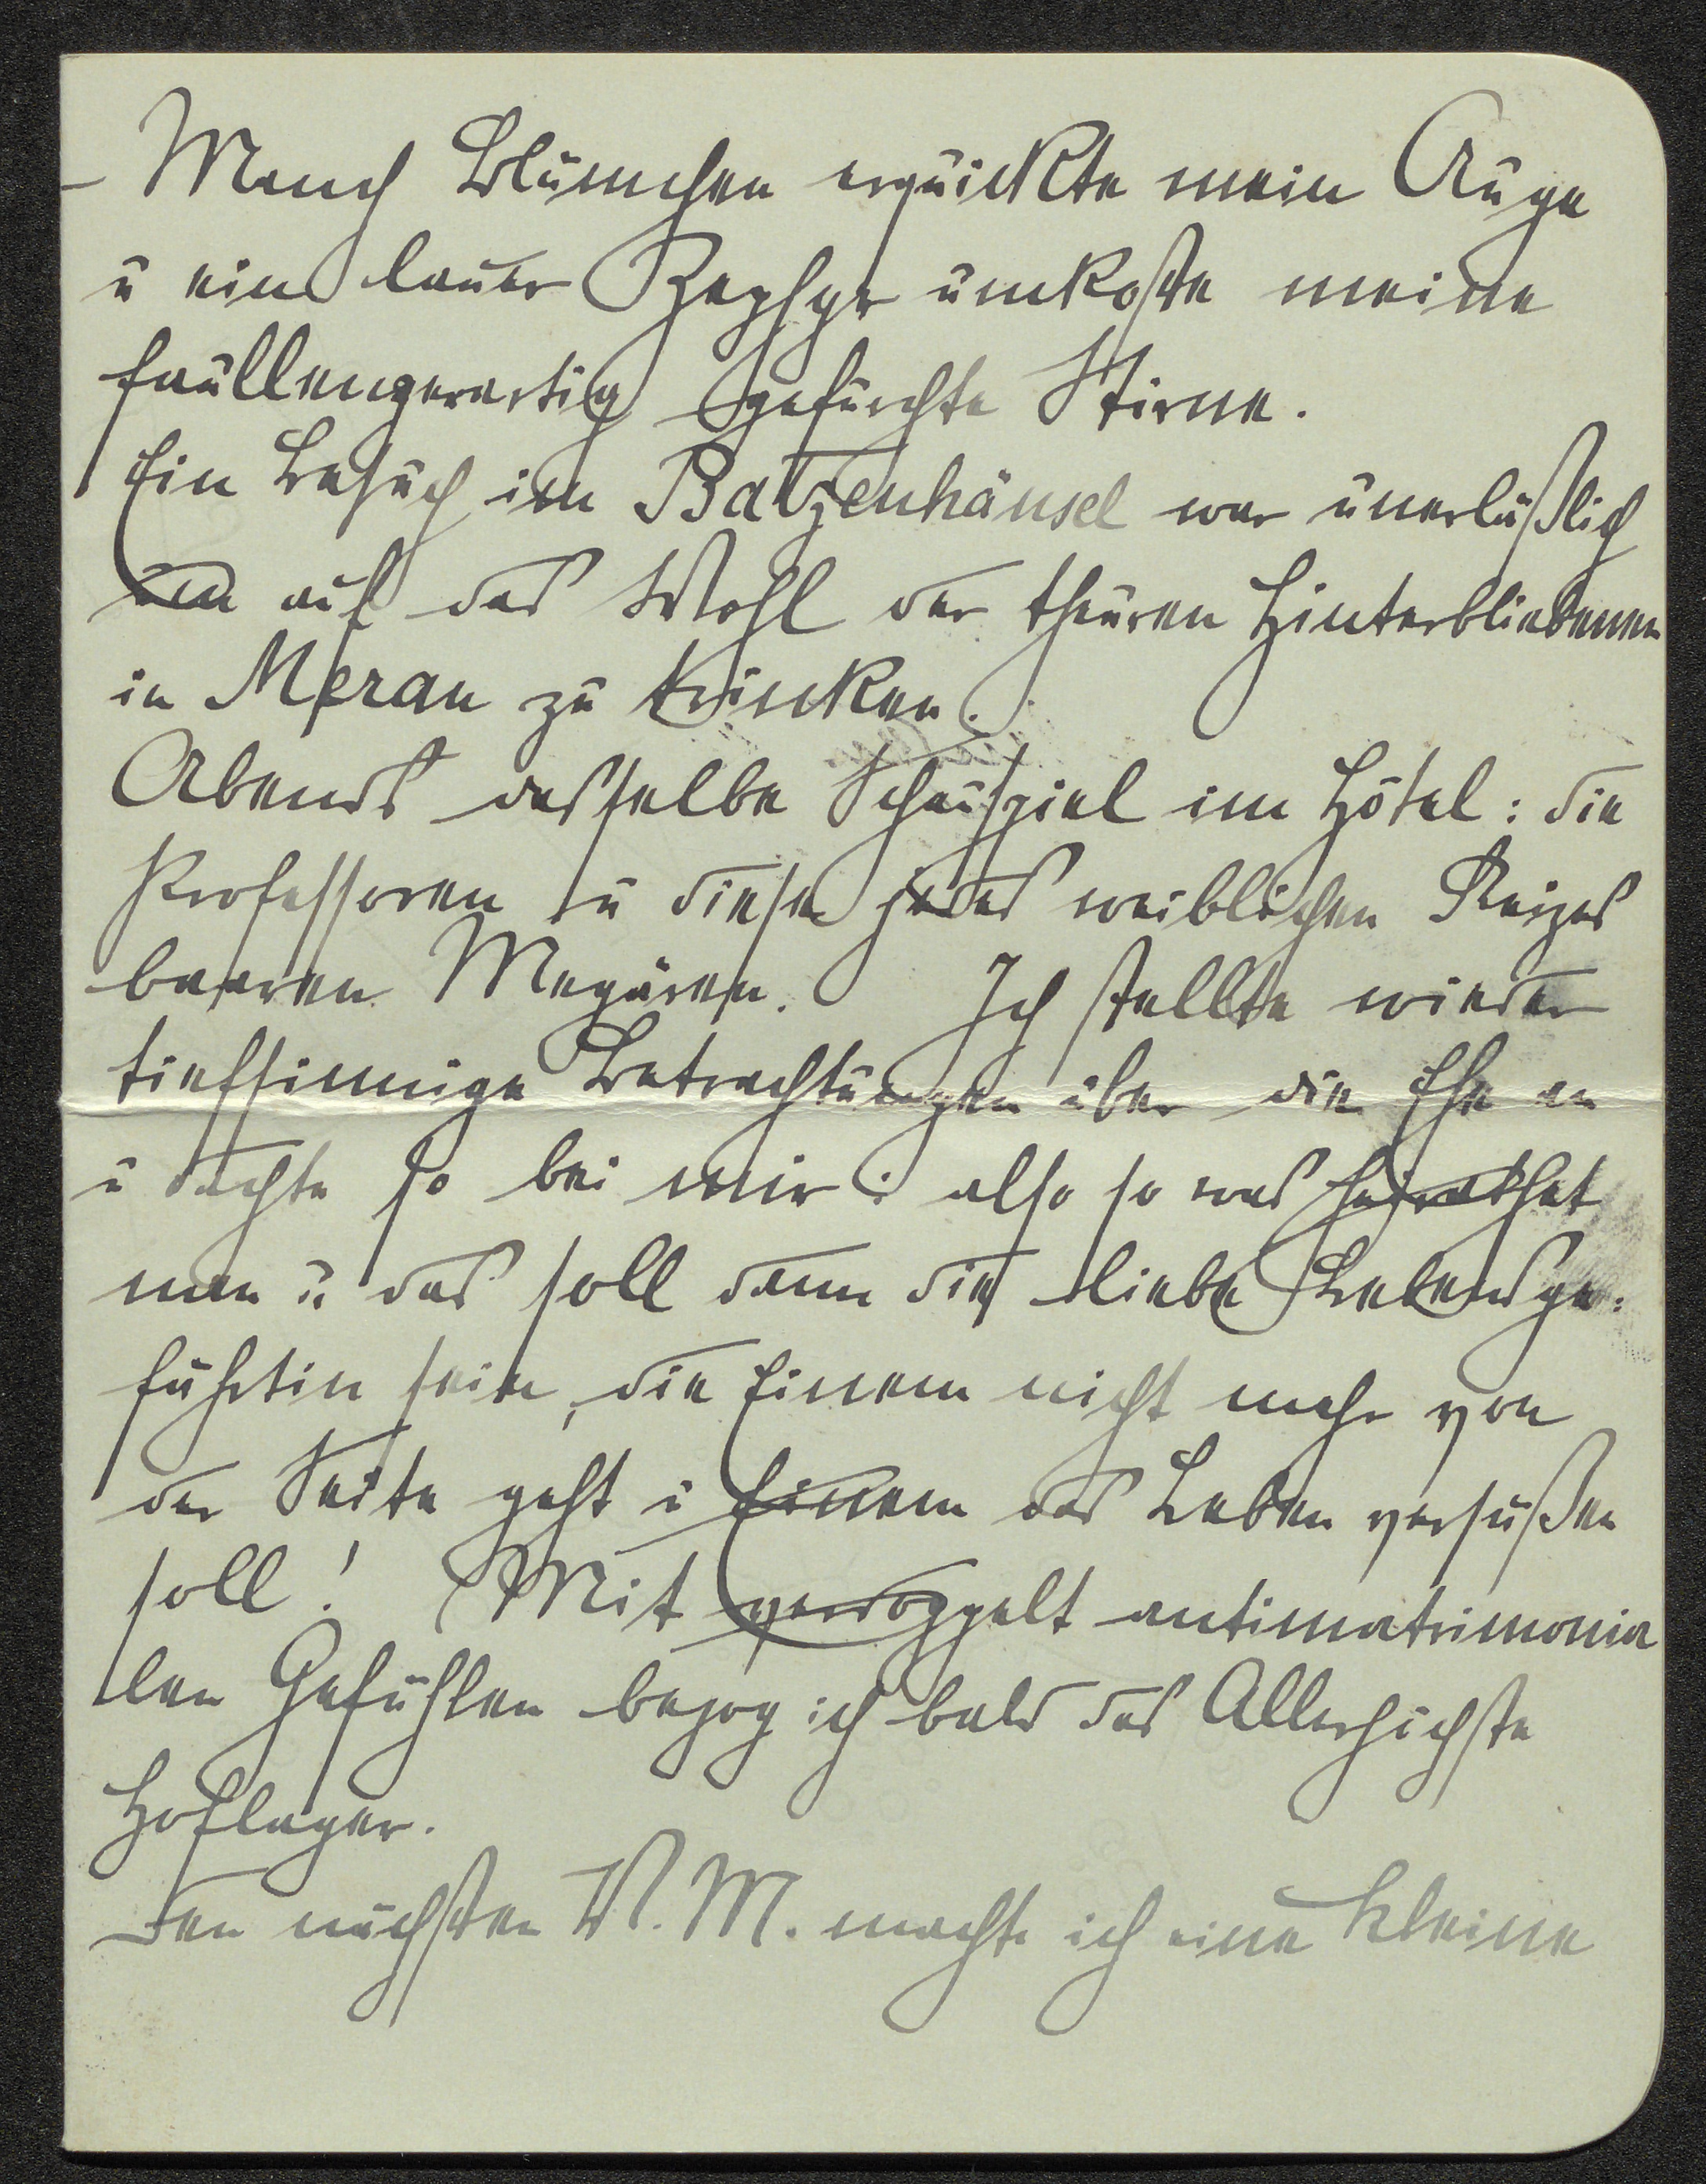 – Manch Blümchen erquickte mein Auge
u ein lauer Zephyr umkoste meine
faullenzerartig gefurchte Stirne.
Ein Besuch im Batzenhäusel war unerläßlich
um auf das Wohl der theuren Hinterbliebenen
in Meran zu trinken.
Abends dasselbe Schauspiel im Hôtel: die
Professoren u diese jedes weiblichen Reizes
baaren Megären. Ich stellte wieder
tiefsinnige Betrachtungen über die Ehe an
u dachte so bei mir: also so was heirathet
man u das soll dann die liebe Lebensge:
fährtin sein, die Einem nicht mehr von
der Seite geht u Einem das Leben versüßen
soll! Mit verdoppelt antimatrimonia
len Gefühlen bezog ich bald das Allerhöchste
Hoflager.
Den nächsten V. M. machte ich eine kleine